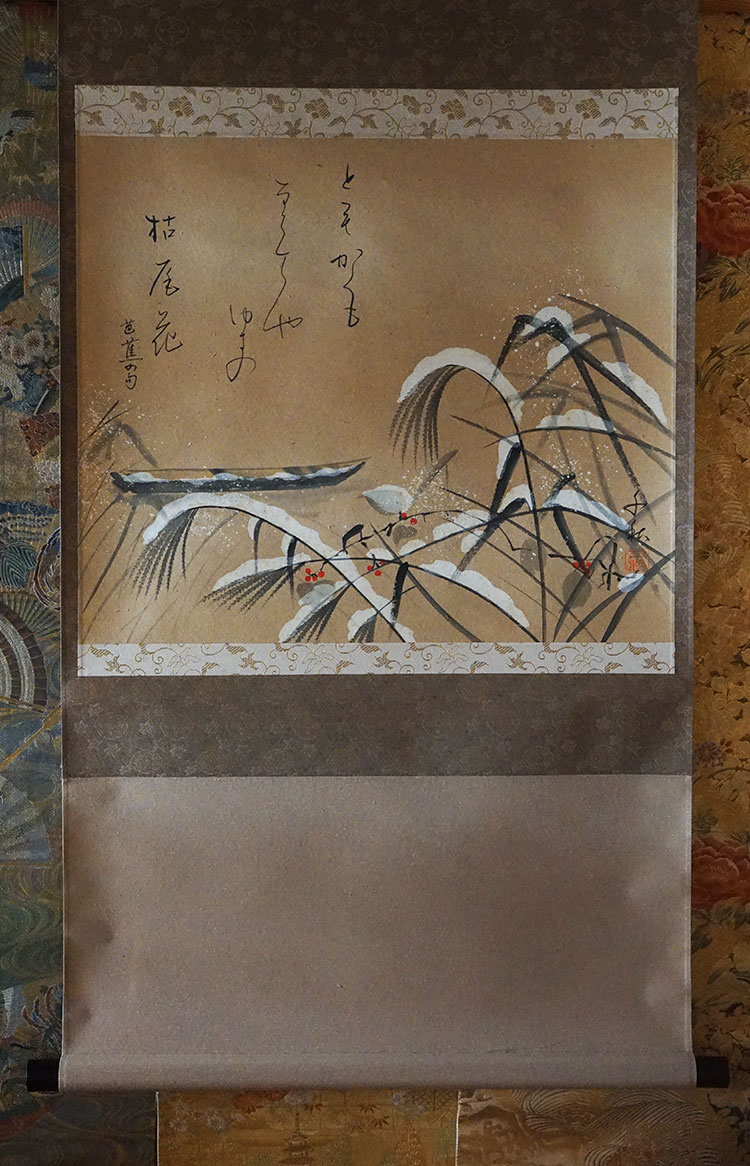 ともかくも
ならてや
ゆきの
枯尾花
芭蕉の句